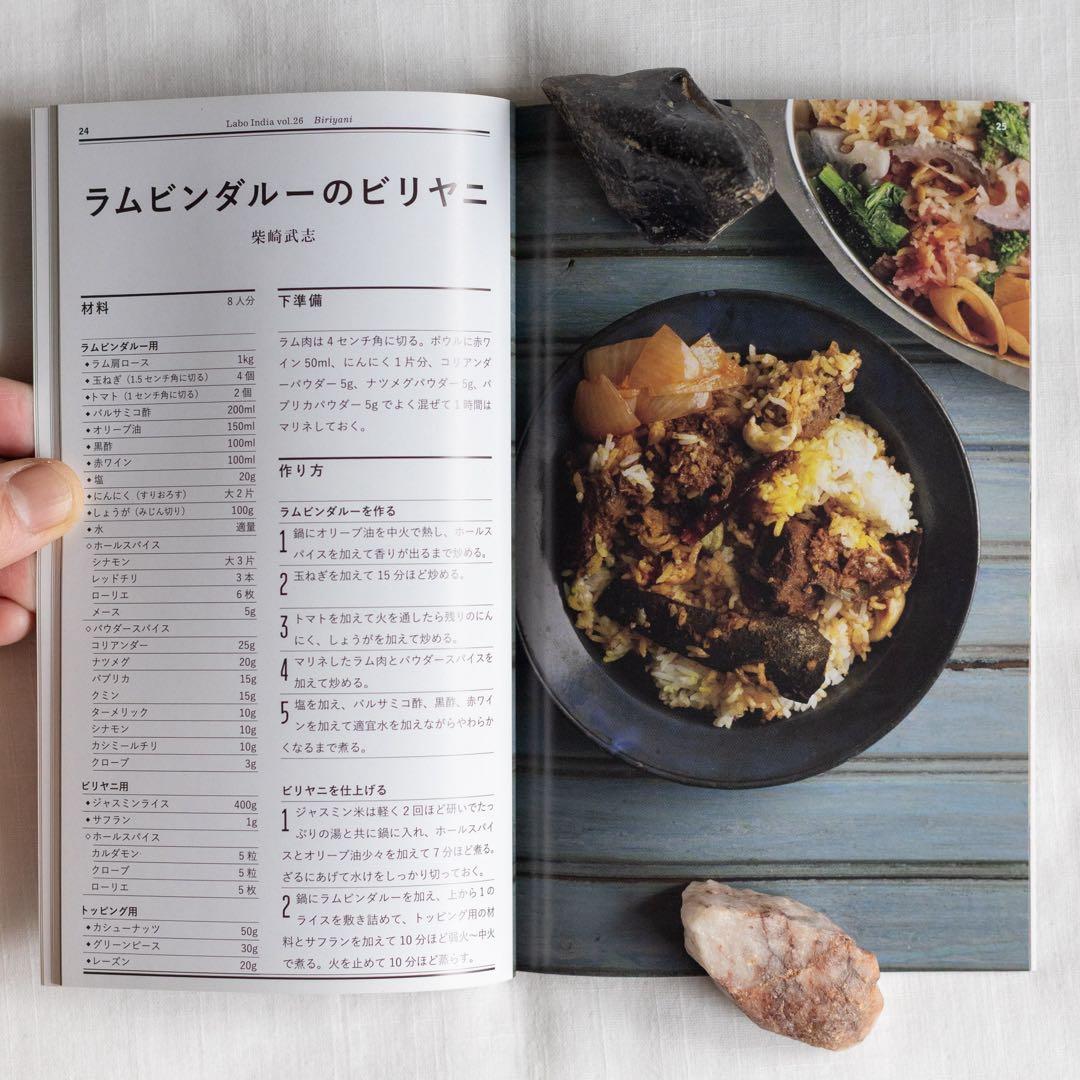 24
Labo India vol.26 Biriyani
ラムビンダルーのビリヤニ
柴崎武志
材料 8人分
ラムビンダルー用
◆ラム肩ロース 1kg
◆玉ねぎ（1.5センチ角に切る） 4個
◆トマト（1センチ角に切る） 2個
◆バルサミコ酢 200ml
◆オリーブ油 150ml
◆黒酢 100ml
◆赤ワイン 100ml
◆塩 20g
◆にんにく（すりおろす） 大2片
◆しょうが（みじん切り） 100g
◆水 適量
◇ホールスパイス
シナモン 大3片
レッドチリ 3本
ローリエ 6枚
メース 5g
◇パウダースパイス
コリアンダー 25g
ナツメグ 20g
パプリカ 15g
クミン 15g
ターメリック 10g
シナモン 10g
カシミールチリ 10g
クローブ 3g
ビリヤニ用
◆ジャスミンライス 400g
◆サフラン 1g
◇ホールスパイス
カルダモン 5粒
クローブ 5粒
ローリエ 5枚
トッピング用
◆カシューナッツ 50g
◆グリーンピース 30g
◆レーズン 20g
下準備
ラム肉は4センチ角に切る。ボウルに赤ワ
イン50ml、にんにく1片分、コリアンダ
ーパウダー5g、ナツメグパウダー5g、パ
プリカパウダー5gでよく混ぜて1時間は
マリネしておく。
作り方
ラムビンダルーを作る
1 鍋にオリーブ油を中火で熱し、ホールス
パイスを加えて香りが出るまで炒める。
2 玉ねぎを加えて15分ほど炒める。
3 トマトを加えて火を通したら残りのにん
にく、しょうがを加えて炒める。
4 マリネしたラム肉とパウダースパイスを
加えて炒める。
5 塩を加え、バルサミコ酢、黒酢、赤ワイ
ンを加えて適宜水を加えながらやわらか
くなるまで煮る。
ビリヤニを仕上げる
1 ジャスミン米は軽く2回ほど研いでたっ
ぷりの湯と共に鍋に入れ、ホールスパイ
スとオリーブ油少々を加えて7分ほど煮る。
ざるにあげて水けをしっかり切っておく。
2 鍋にラムビンダルーを加え、上から1の
ライスを敷き詰めて、トッピング用の材
料とサフランを加えて10分ほど弱火〜中火
で煮る。火を止めて10分ほど蒸らす。
25